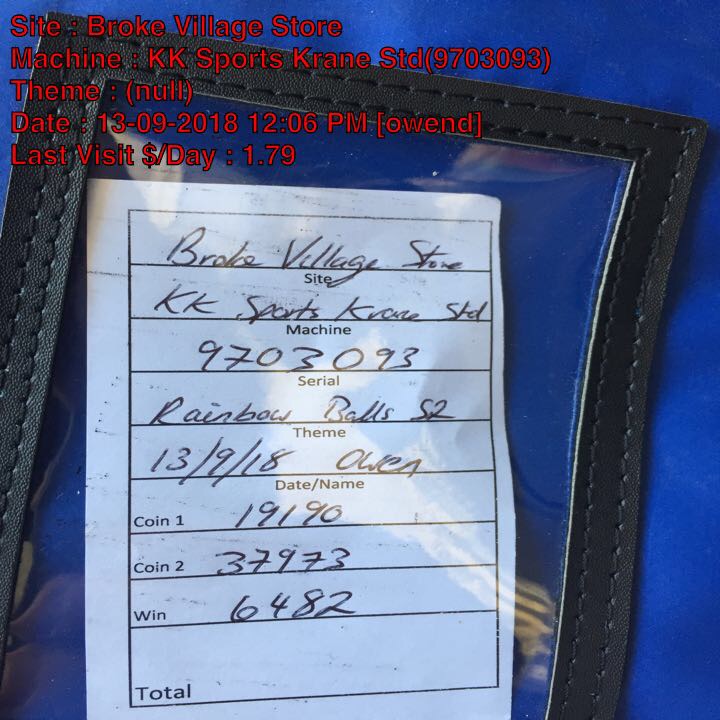 Site : Broke Village Store
Machine : KK Sports Krane Std(9703093)
Theme : (null)
Date : 13-09-2018 12:06 PM [owend]
Last Visit $/Day : 1.79
Broke Village Store
Site
KK Sports Krane Std
Machine
9703093
Serial
Rainbow Balls S2
Theme
13/9/18 Owen
Date/Name
Coin 1 19190
Coin 2 37973
Win 6482
Total